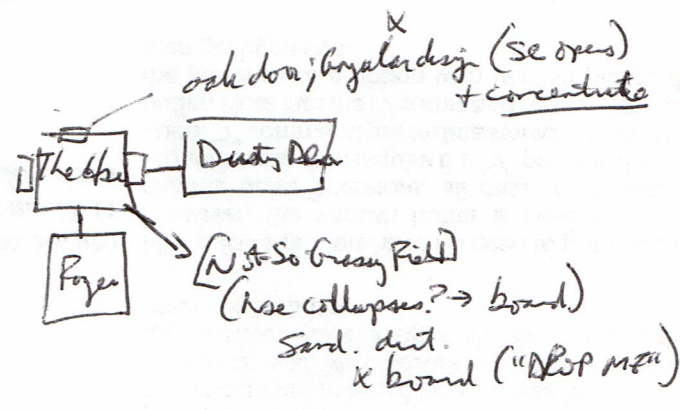 x
oak door; design (SE opens)
+ concentrate
The
Dusty
Foyer
[Not-So Grassy Field]
(hse collapses? → board)
Sand. dirt.
x board ("DROP ME")